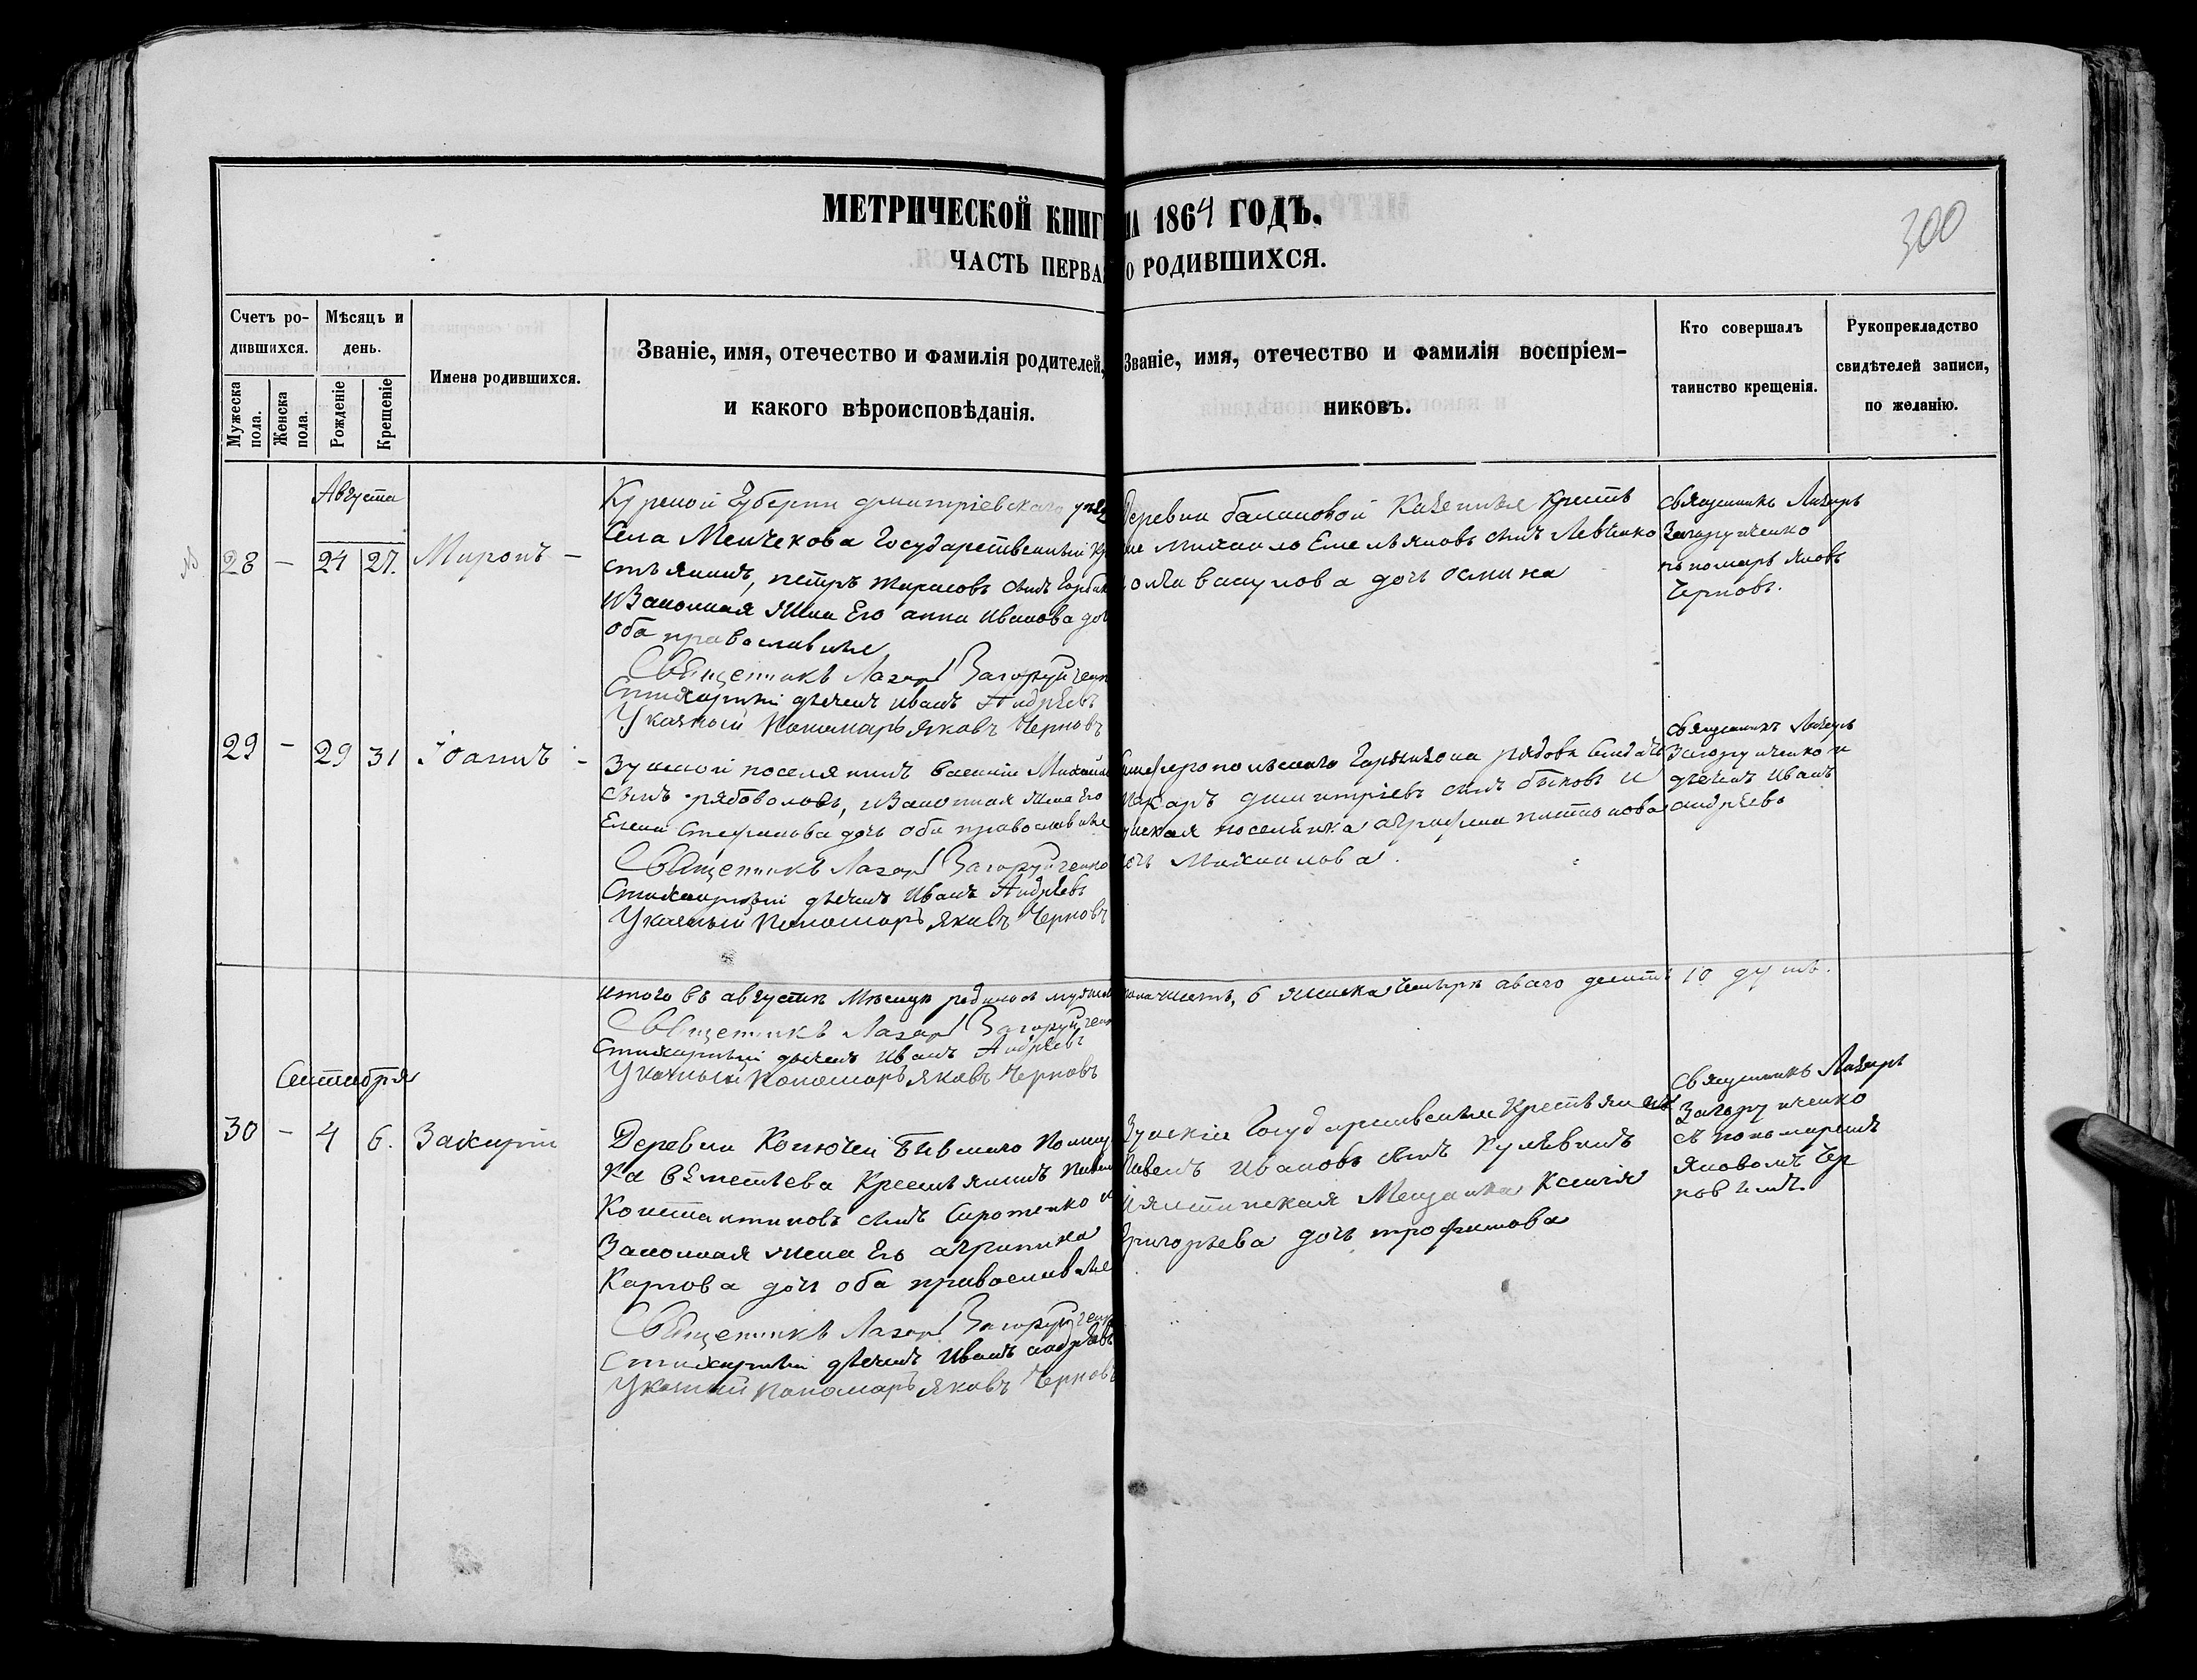 МЕТРИЧЕСКОЙ КНИГ НА 1864 ГОДЪ.
300
ЧАСТЬ ПЕРВА О РОДИВШИХСЯ.
Счетъ ро-
дившихся.
Мужеска
пола.
Женска
пола.
Мѣсяцъ и
день.
Рожденіе
Крещеніе
Имена родившихся.
Званіе, имя, отечество и фамилія родителей,
и какого вѣроисповѣданія.
Званіе, имя, отечество и фамилія воспріем-
никовъ.
Кто совершалъ
таинство крещенія.
Рукопрекладство
свидѣтелей записи,
по желанію.
Августа
28 — 24 27. Миронъ —
Курской Губерни дмитріевскаго
Села Менчекова Государственный
стьянинъ, петръ тарасовъ сынъ
и Законная жена Его анна Иванова
оба православные
Священникъ Лазарь Загоруйченко
Стихарный дьячекъ Иванъ Андрѣевъ
Указный Пономарь Яковъ Черновъ
Деревни балановой Казенные крестья
не михаило Емельяновъ сынъ Левченко
дочь
Священникъ Лазарь
Загоруйченко
пономарь Яковъ
Черновъ.
29 — 29 31 Іоаннъ -
Зуйской поселянинъ
сынъ рябоволовъ, и Законная жена Его
Елена Стефанова дочь оба православные
Священникъ Лазарь Загоруйченко
Стихарный дьячекъ Иванъ Андрѣевъ
Указный Пономарь Яковъ Черновъ
рядовы
дмитріевъ сынъ быковъ и
поселянка
Михаилова.
Священникъ Лазарь
Загоруйченко и
дьячекъ Иванъ
андрѣевъ
итого въ августѣ мѣсяцѣ родилось
6 женска четыре обаго десять 10 душъ.
Священникъ Лазарь Загоруйченко
Стихарный дьячекъ Иванъ Андрѣевъ
Указный Пономарь Яковъ Черновъ
Сентября
30 — 4 6. Захарій
Деревни бывшаго
ка Крестьянинъ
Константиновъ сынъ Сиротенко и
Законная жена Его агрипина
Карпова дочь оба православные
Священникъ Лазарь Загоруйченко
Стихарный дьячекъ Иванъ андрѣевъ
Указный Пономарь Яковъ Черновъ
Зуйскіе Государственные Крестьянинъ
Павелъ Ивановъ сынъ
Мещанка Ксенія
Григорьева дочь трофимова
Священникъ Лазарь
Загоруйченко
съ пономаремъ
Яковомъ Чер
новымъ.